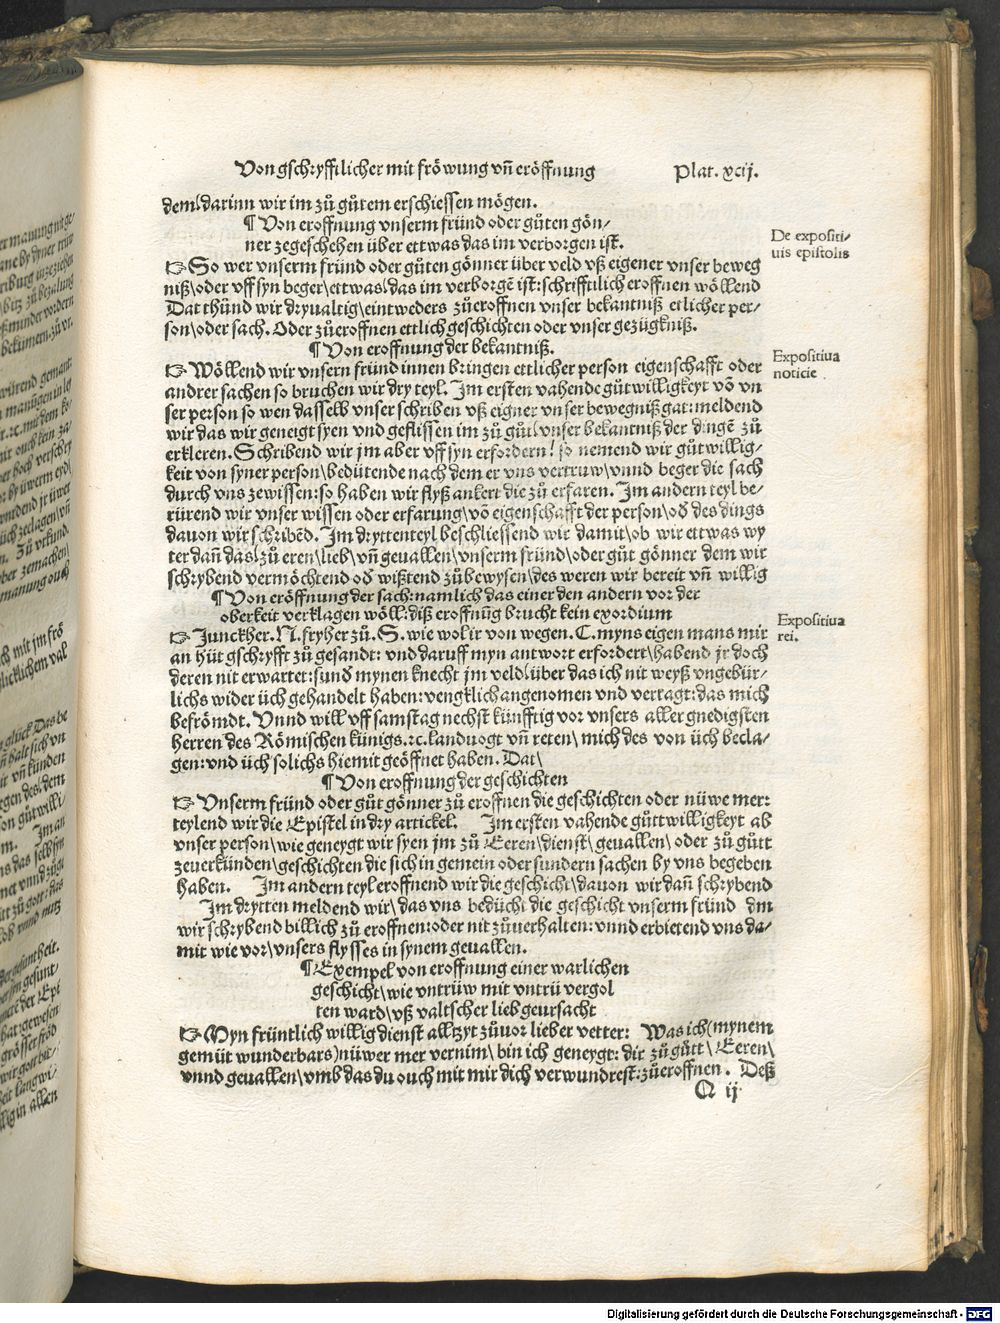 Von gschryfftlicher mit fröwung vñ eröffnung Plat. xcij.
dem\darinn wir im zů gůtem erschiessen mögen.
¶ Von eroffnung vnserm fründ oder gůten gön-
ner zegeschehen über ettwas das im verborgen ist.
De expositi-
uis epistolis
☞ So wer vnserm fründ oder gůten gönner über veld vß eigener vnser beweg
niß\oder vff syn beger\ettwas\das im verborgē ist: schrifftlich eroffnen wöllend
Dat thůnd wir dryualtig\eintweders zůeroffnen vnser bekantniß etlicher per-
son\oder sach. Oder zůeroffnen ettlich geschichten oder vnser gezügkniß.
¶ Von eroffnung der bekantniß.
Expositiua
noticie
☞ Wöllend wir vnsern fründ innen bringen ettlicher person eigenschafft oder
andrer sachen so bruchen wir dry teyl. Im ersten vahende gůtwilligkeyt vō vn
ser person so wen dasselb vnser schriben vß eigner vnser bewegniß gat: meldend
wir das wir geneigt syen vnd geflissen im zů gůt\vnser bekantniß der dingē zů
erkleren. Schribend wir jm aber vff syn erfordern\ so nemend wir gůtwillig-
keit von syner person\bedütende nach dem er vns vertruw\vnnd beger die sach
durch vns zewissen: so haben wir flyß ankert die zů erfaren. Im andern teyl be-
rürend wir vnser wissen oder erfarung\vō eigenschafft der person\oď des dings
dauon wir schribēd. Im drytten teyl beschliessend wir damit\ob wir ettwas wy
ter dañ das\zů eren\lieb\vñ geuallen\vnserm fründ\oder gůt gönner dem wir
schrybend vermöchtend oď wißtend zůbewysen\des weren wir bereit vñ willig
¶ Von eröffnung der sach: namlich das einer den andern vor der
oberkeit verklagen wöll: diß eroffnūg brucht kein exordium
Expositiua
rei.
☞ Junckher. N. fryher zů. S. wie wol ir von wegen. C. myns eigen mans mir
an hüt gschryfft zů gesandt: vnd daruff myn antwort erfordert\habend jr doch
deren nit erwartet: sunď mynen knecht jm veld\über das ich nit weyß vngebür-
lichs wider üch gehandelt haben: vengklich angenomen vnd vertagt: das mich
befrömdt. Vnnd will vff samstag nechst künfftig vor vnsers aller gnedigsten
herren des Römischen künigs. ꝛc. landuogt vñ reten\ mich des von üch becla-
gen: vnd üch solichs hiemit geöffnet haben. Dat\
¶ Von eroffnung der geschichten
☞ Vnserm fründ oder gůt gönner zů eroffnen die geschichten oder nüwe mer:
teylend wir die Epistel in dry artickel. Im ersten vahende gůttwilligkeyt ab
vnser person\wie geneygt wir syen jm zů Eeren\dienst\geuallen\oder zů gůtt
zeuerkünden\geschichten die sich in gemein oder sundern sachen by vns begeben
haben. Im andern teyl eroffnend wir die geschicht\dauon wir dañ schrybend
Im drytten meldend wir\das vns bedücht die geschicht vnserm fründ dm
wir schrybend billich zů eroffnen: oder nit zůuerhalten: vnnd erbietend vns da-
mit wie vor\vnsers flysses in synem geuallen.
¶ Exempel von eroffnung einer warlichen
geschicht\wie vntrüw mit vntrü vergol
ten ward\vß valtscher lieb geursacht
☞ Myn früntlich willig dienst allzyt zůuor lieber vetter: Was ich (mynem
gemüt wunderbars) nüwer mer vernim\ bin ich geneygt: dir zů gůtt\ Eeren\
vnnd geuallen\vmb das du ouch mit mir dich verwundrest: zůeroffnen. Deß
Q ij
Digitalisierung gefördert durch die Deutsche Forschungsgemeinschaft - DFG